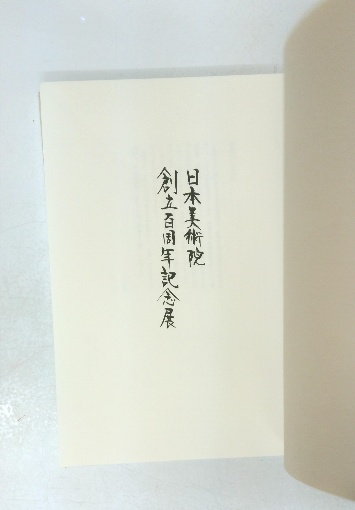 日本美術院
創立百周年記念展